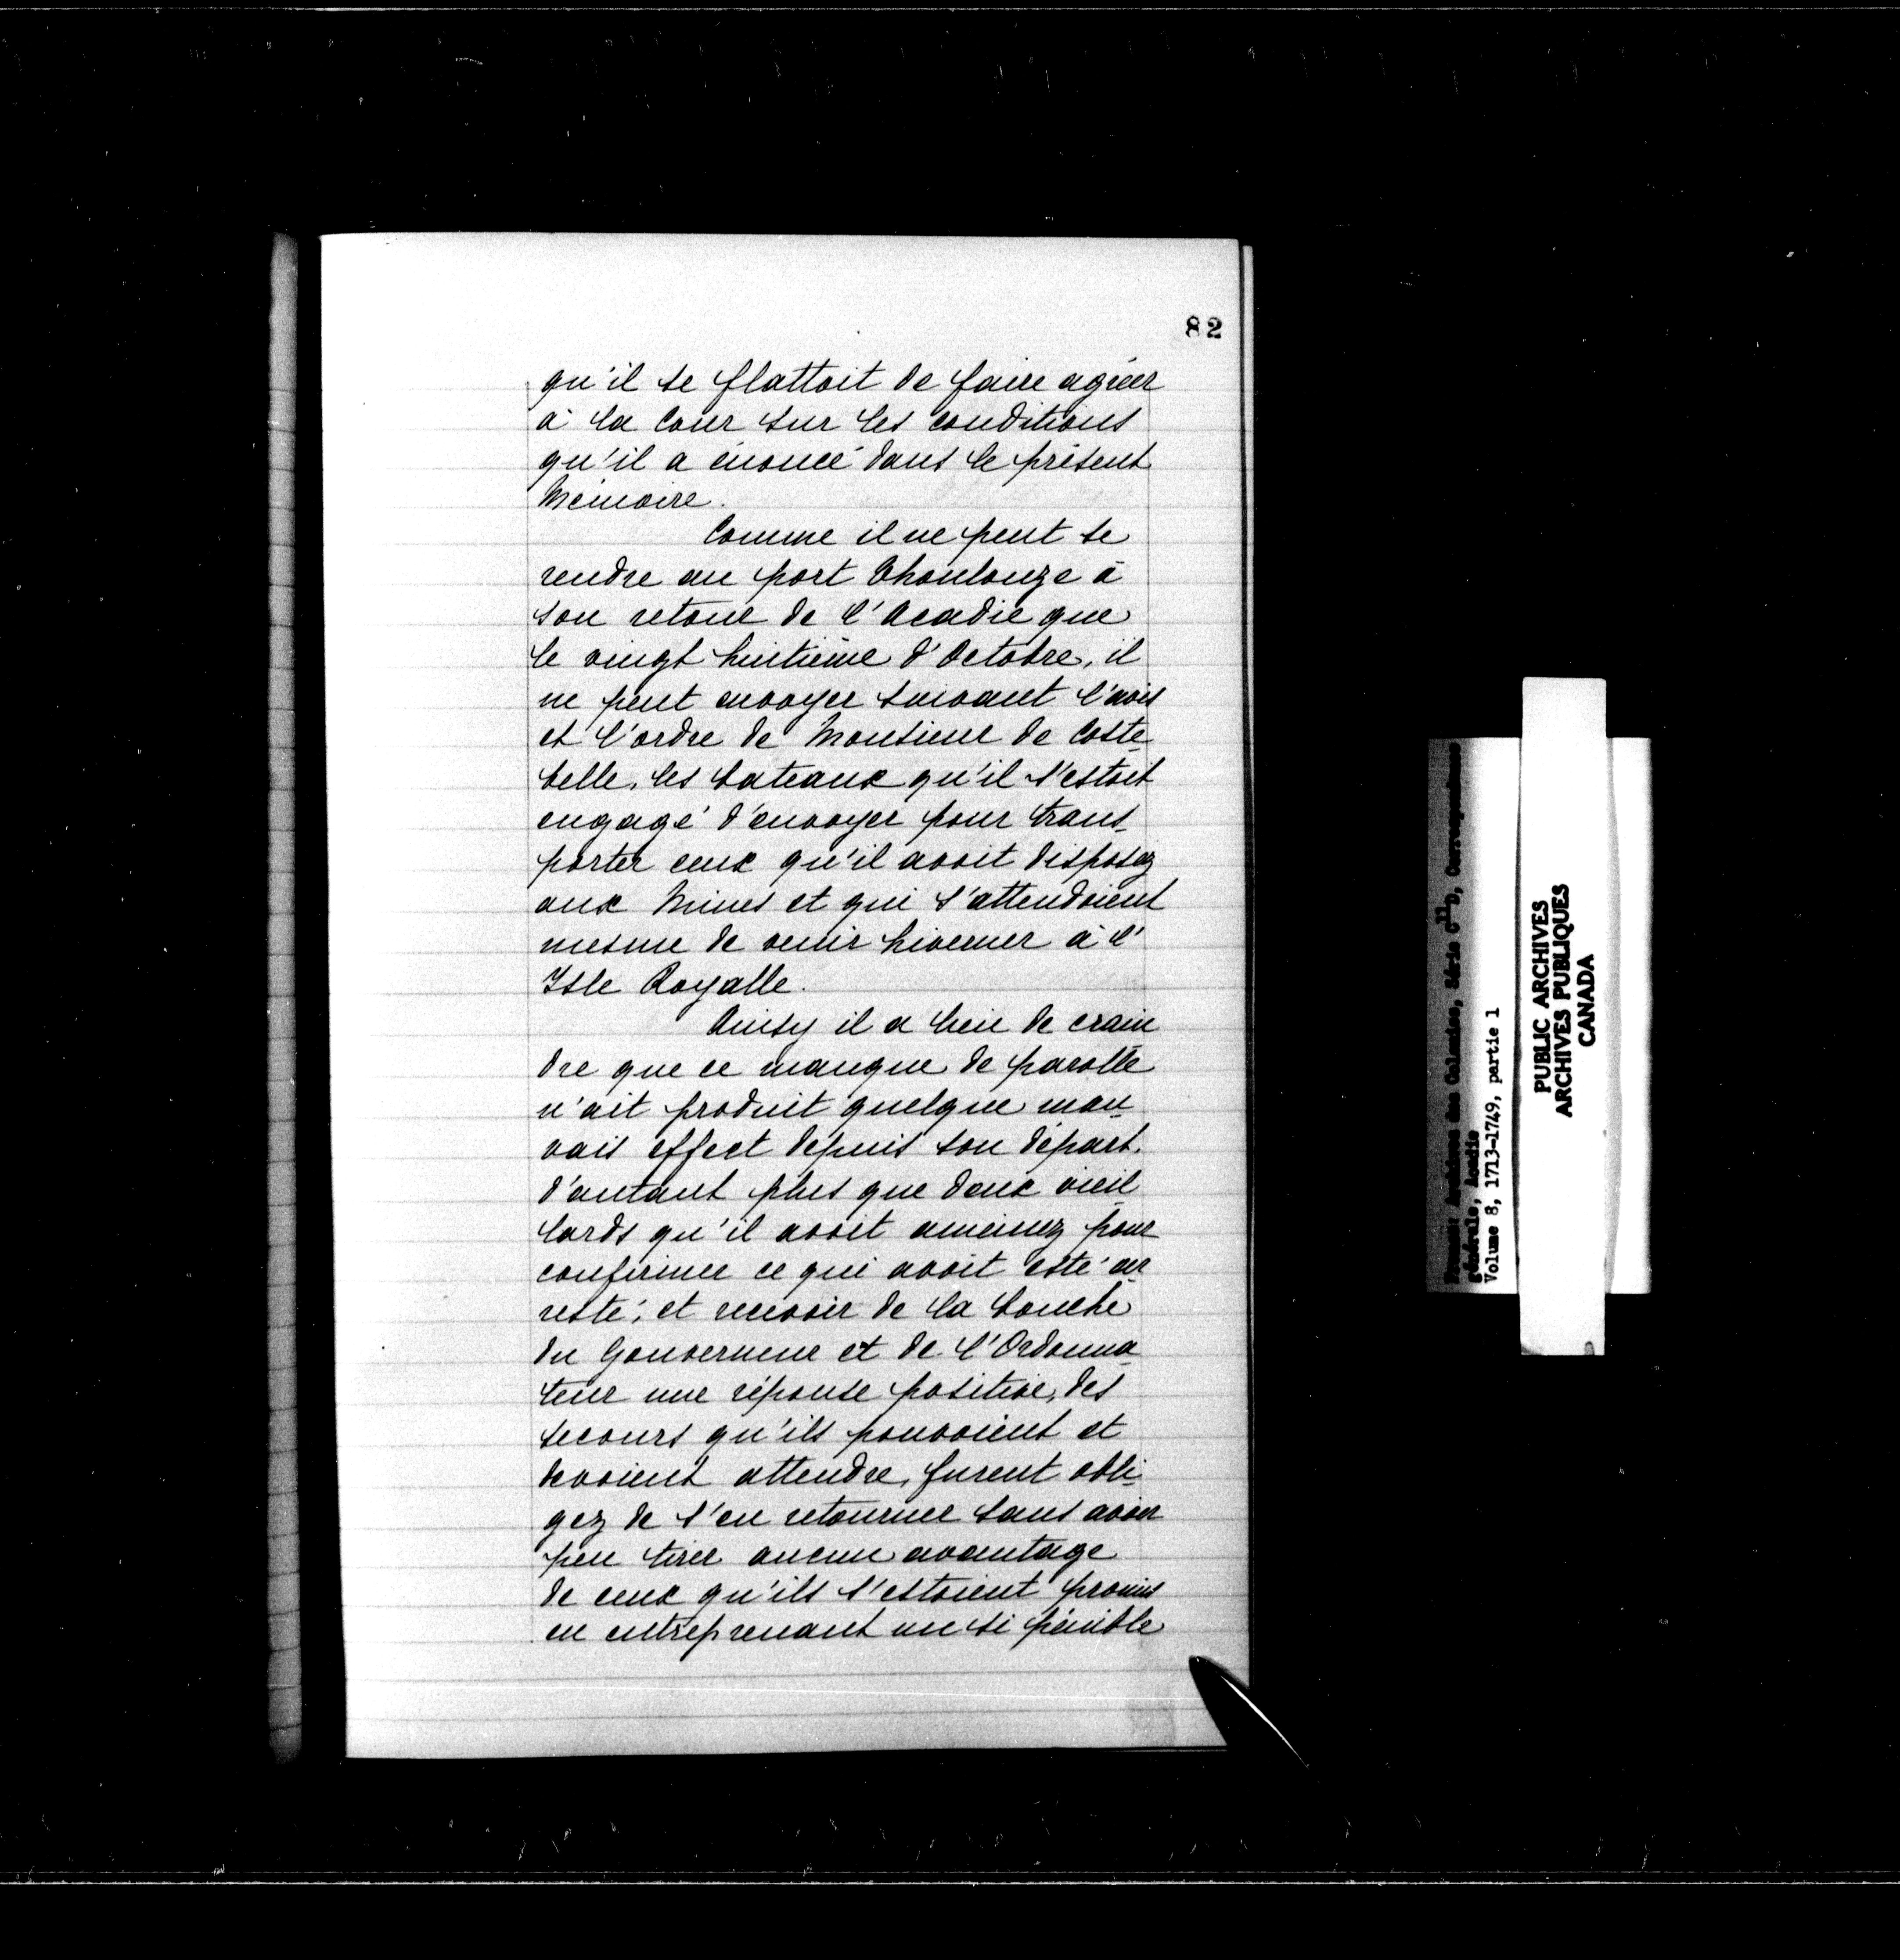 82
qu'il se flattoit de faire agréer
à la Cour sur les conditions
qu'il a énoncé dans le présent
Mémoire.
Comme il ne peut se
rendre au port Thoulouze à
son retour de l'Acadie que
le vingt huitième d'Octobre, il
ne peut envoyer suivant l'avis
et l'ordre de Monsieur de Coste-
belle, les bateaux qu'il s'estoit
engagé d'envoyer pour trans-
porter ceux qu'il avoit disposez
aux Mines et qui s'attendoient
mesme de venir hiverner à l'
Isle Royalle.
Ainsy il a lieu de crain
dre que ce manque de parolle
n'ait produit quelque mau-
vais effect depuis son départ.
d'autant plus que deux vieil-
lards qu'il avoit ameinez pour
confirmer ce qui avoit esté ar-
resté; et recevoir de la bouche
du Gouverneur et de l'Ordonna-
teur une réponse positive, des
secours qu'ils pouvoient et
devoient attendre, furent obli-
gez de s'en retourner sans avoir
peu tirer aucun avantage
de ceux qu'ils s'estoient promis
en entreprenant un si pénible
France: Archives des Colonies, Série C11D, Correspondance
générale, Acadie
Volume 8, 1713-1749, partie 1
PUBLIC ARCHIVES
ARCHIVES PUBLIQUES
CANADA